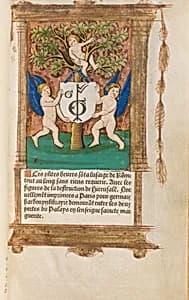 Ces pñtes heures sõt a lusaige de Rõme
tout au long sans riens requerir. Auec les
figures de la destruction de Hierusalẽ. Nou
uellemẽt imprimees a Paris pour germain
hardouyn libraire demourãt entre les deux
portes du Palays a lenseigne saincte mar
guerite.